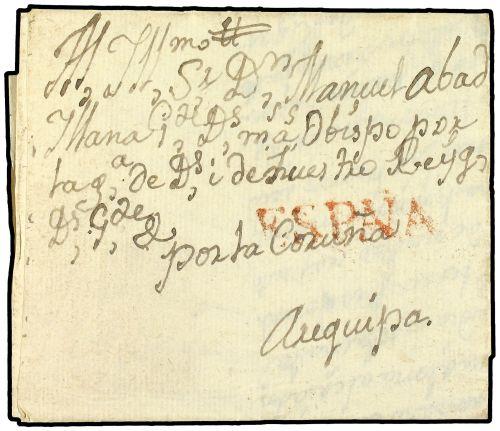 Yll Yll mo
Sr Dn Manuel Abad
Yllana Por Ds ss ma Obispo por
la ga de Ds i de nuestro Rey q
Ds Gde &
ESPÑA
por la Coruña
Arequipa.